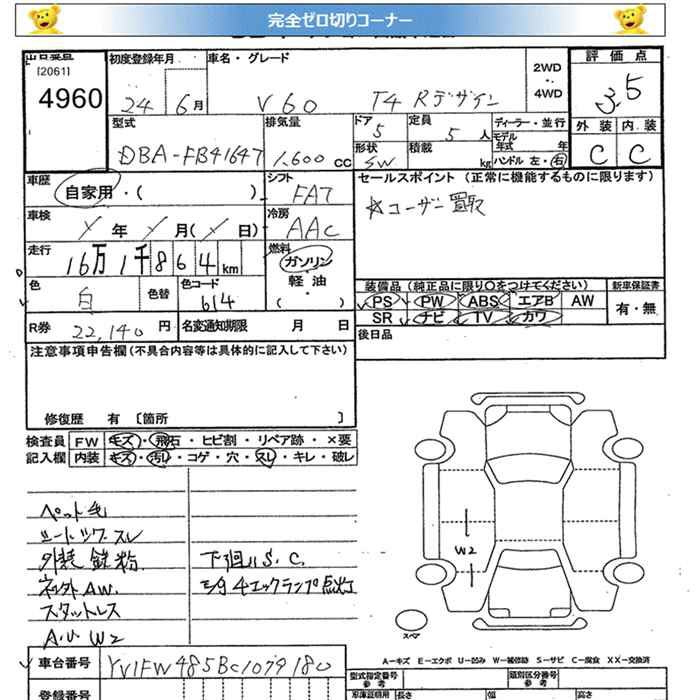 完全ゼロ切りコーナー
出品番号 初度登録年月 車名・グレード 評価点
[2061]
4960
24 6月 V60 T4 Rデザイン 2WD ・ 4WD 3.5
型式 排気量 ドア 定員 ディーラー・並行 外装 内装
DBA-FB4164T 1,600 cc 5 5人 モデル年式 年 C C
形状 SW 積載 kg ハンドル 左・右
車歴 自家用・( ) シフト FAT セールスポイント (正常に機能するものに限ります)
車検 / 年 / 月( / 日) 冷房 AAC ☆ユーザー買取
走行 16万1千864km 燃料 ガソリン 軽・油 ( )
色 白 色替 色コード 614
装備品 (純正品に限り〇をつけてください) 新車保証書
PS PW ABS エアB AW 有・無
SR ナビ TV カワ
R券 22,140円 名変通知期限 月 日 後日品
注意事項申告欄(不具合内容等は具体的に記入して下さい)
修復歴 有 [箇所 ]
検査員 FW キズ・飛石・ヒビ割・リペア跡・×要
記入欄 内装 キズ・汚れ・コゲ・穴・スレ・キレ・破レ
ペット毛
シートシワスレ
外装 鉄粉 下回りS.C.
社外AW. エンジンチェックランプ点灯
スタットレス
A.U W2
W2
スペア
A-キズ E-エクボ U-凹み W-補修跡 S-サビ C-腐食 XX-交換済
車台番号 YV1FW485BC1079180 型式指定番号 参考 類別区分番号 参考
登録番号 車庫証明用 長さ 幅 高さ